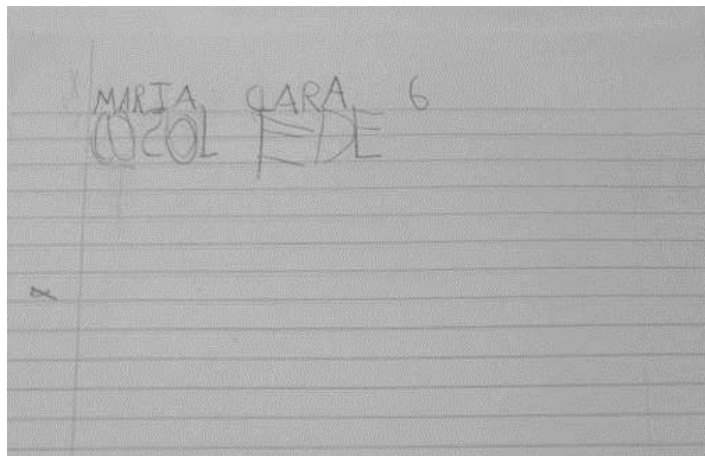 MARIA CLARA 6
COSOL EDE